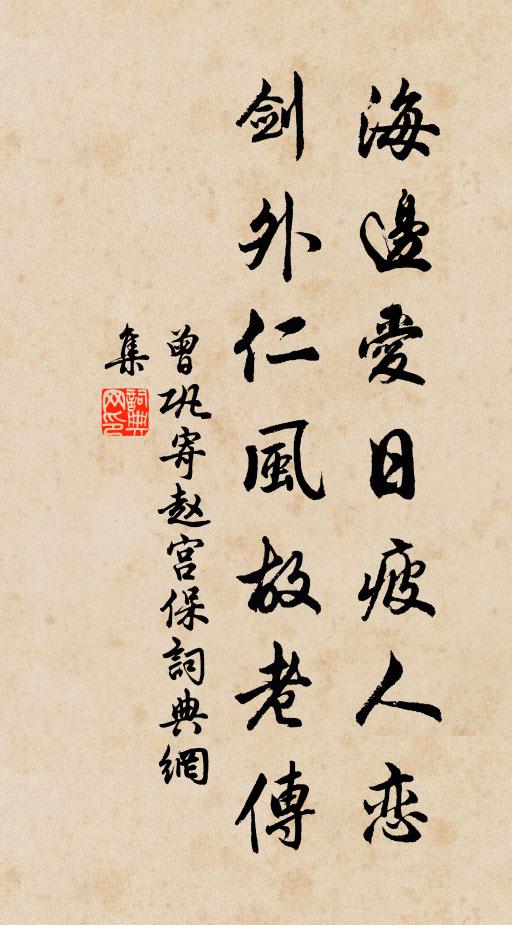 海邊愛日疲人恋
劍外仁風故老傳
曾巩寄赵宫保詞典網
集
詞典网印